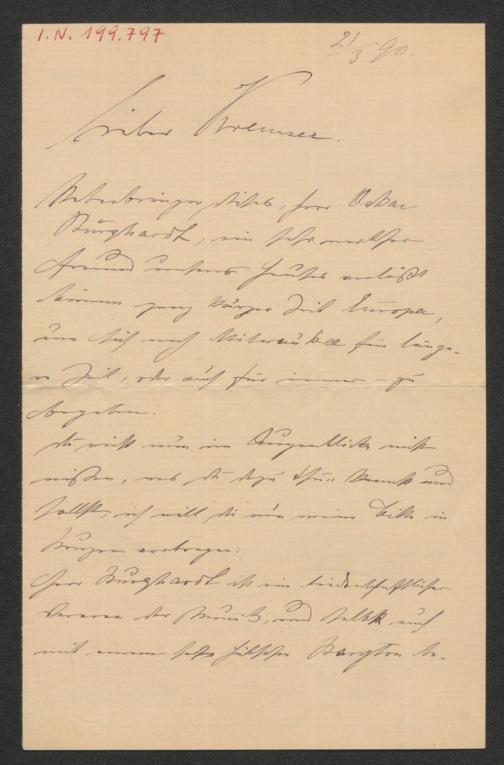 I.N. 199.797
21/3 90.
Lieber Kremser.
Ueberbringer dieses, Herr Oskar
Burghardt, ein sehr werther
Freund unseres Hauses verläßt
binnen ganz kurzer Zeit Europa,
um sich nach Milwaukee für länge-
re Zeit, oder auch für immer – zu
begeben.
Du wirst nun im Augenblicke nicht
wissen, was du dazu thun kannst und
sollst, ich will dir nun meine Bitte in
Kurzem vorbringen:
Herr Burghardt ist ein leidenschaftlicher
Verehrer der Musik, und selbst auch
mit einem sehr hübschen Baryton be-